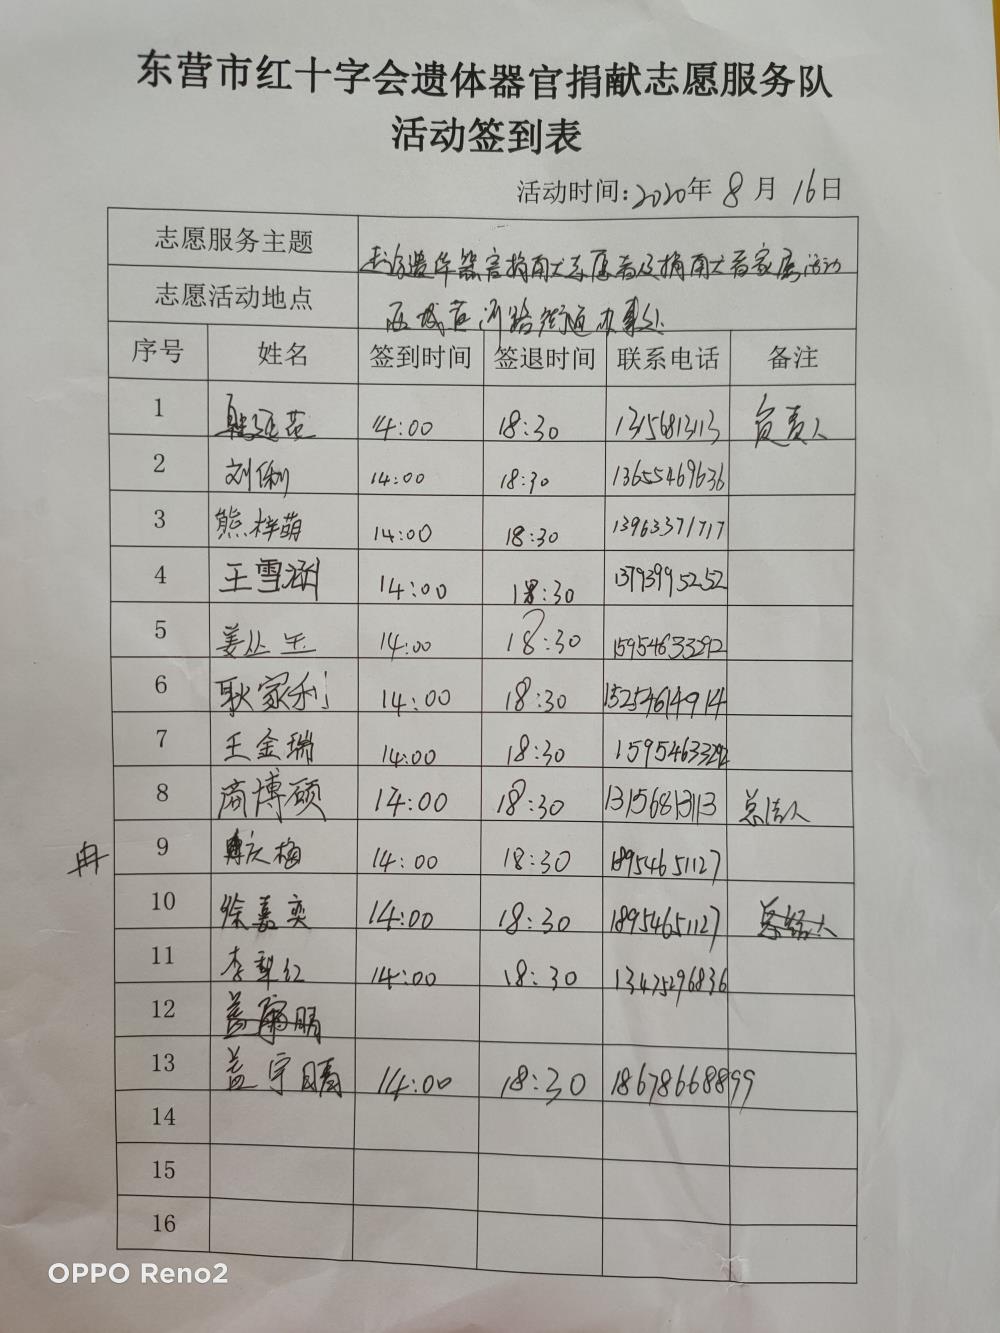 东营市红十字会遗体器官捐献志愿服务队
活动签到表
活动时间:2020年 8 月 16日
志愿服务主题 遗体器官捐献志愿者及捐献者家属活动
志愿活动地点 西城黄河路街道办事处
序号 姓名 签到时间 签退时间 联系电话 备注
1 14:00 18:30 13156813113 负责人
2 刘俐 14:00 18:30 13655469636
3 熊梓萌 14:00 18:30 13963371717
4 王雪涵 14:00 18:30 13793995252
5 姜丛玉 14:00 18:30 15954633292
6 耿家利 14:00 18:30 15254614914
7 王金瑞 14:00 18:30 15954633292
8 商博硕 14:00 18:30 13156813113 总结人
冉 9 冉庆梅 14:00 18:30 18954651127
10 徐嘉奕 14:00 18:30 18954651127
11 李翠红 14:00 18:30 13475296836
12
13 盖宇晴 14:00 18:30 18678668899
14
15
16
OPPO Reno2